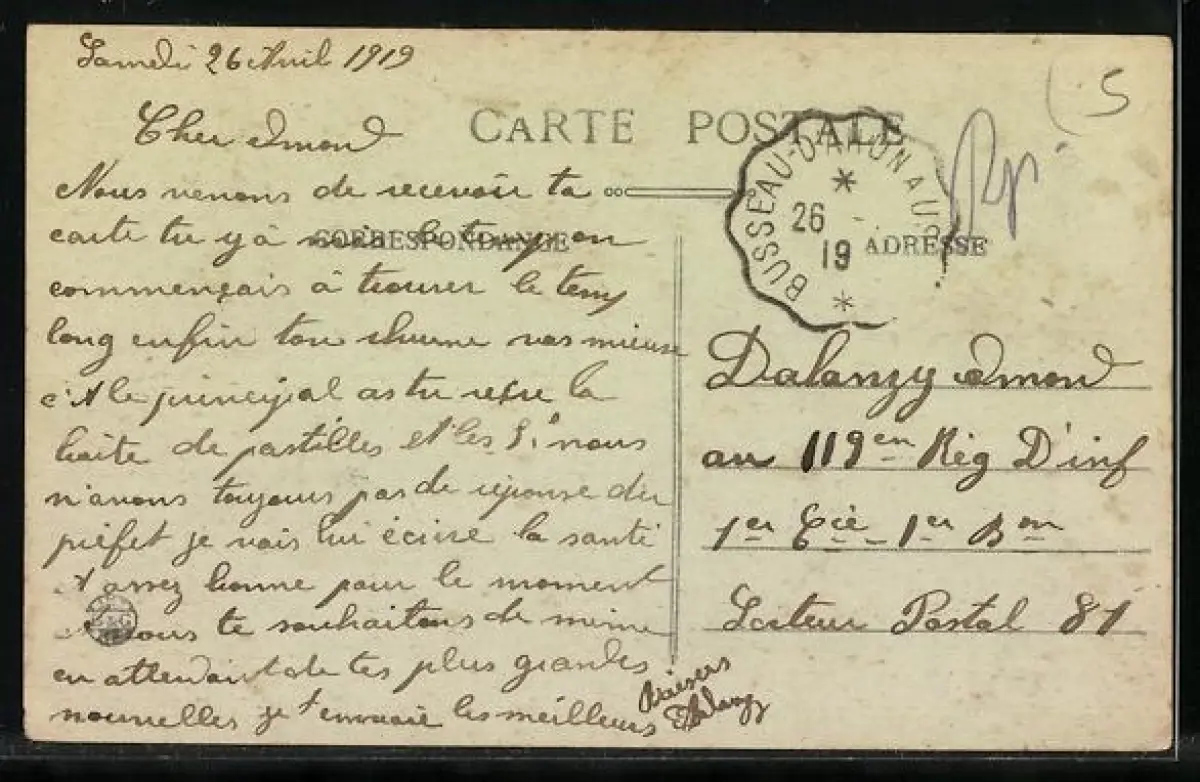 Samedi 26 Avril 1919
CARTE POSTALE
Cher Edmond
Nous venons de recevoir ta
carte tu y a mis le temp on
CORRESPONDANCE
commençais à trouver le temp
long enfin ton rhume vas mieux
c'est le principal as tu reçue la
boite de pastilles et les 5f nous
n'avons toujours pas de réponse du
préfet je vais lui écrire la santé
est assez bonne pour le moment
nous te souhaitons de même
en attendant de tes plus grandes
nouvelles je t'envoie les meilleurs
Baisers
Dalanzy
BUSSEAU-D'AHUN A
26
19
ADRESSE
5
Dalanzy Edmond
au 119en Rég D'inf
1er Cie - 1er Bon
Secteur Postal 81